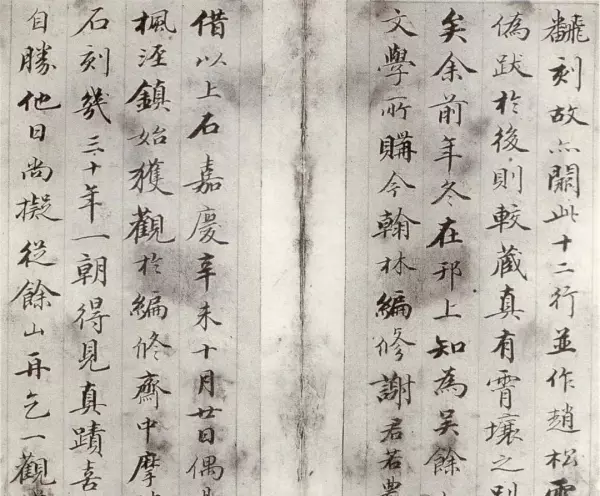 飜刻故亦闕此十二行並作趙松雪
偽跋於後則較藏真有霄壤之別
矣余前年冬在邗上知為吳餘
文學所購今翰林編修謝君若農
借以上石嘉慶辛未十月廿日偶
楓涇鎮始獲觀於編修齋中摩
石刻幾三十年一朝得見真蹟喜
自勝他日尚擬從餘山再乞一觀